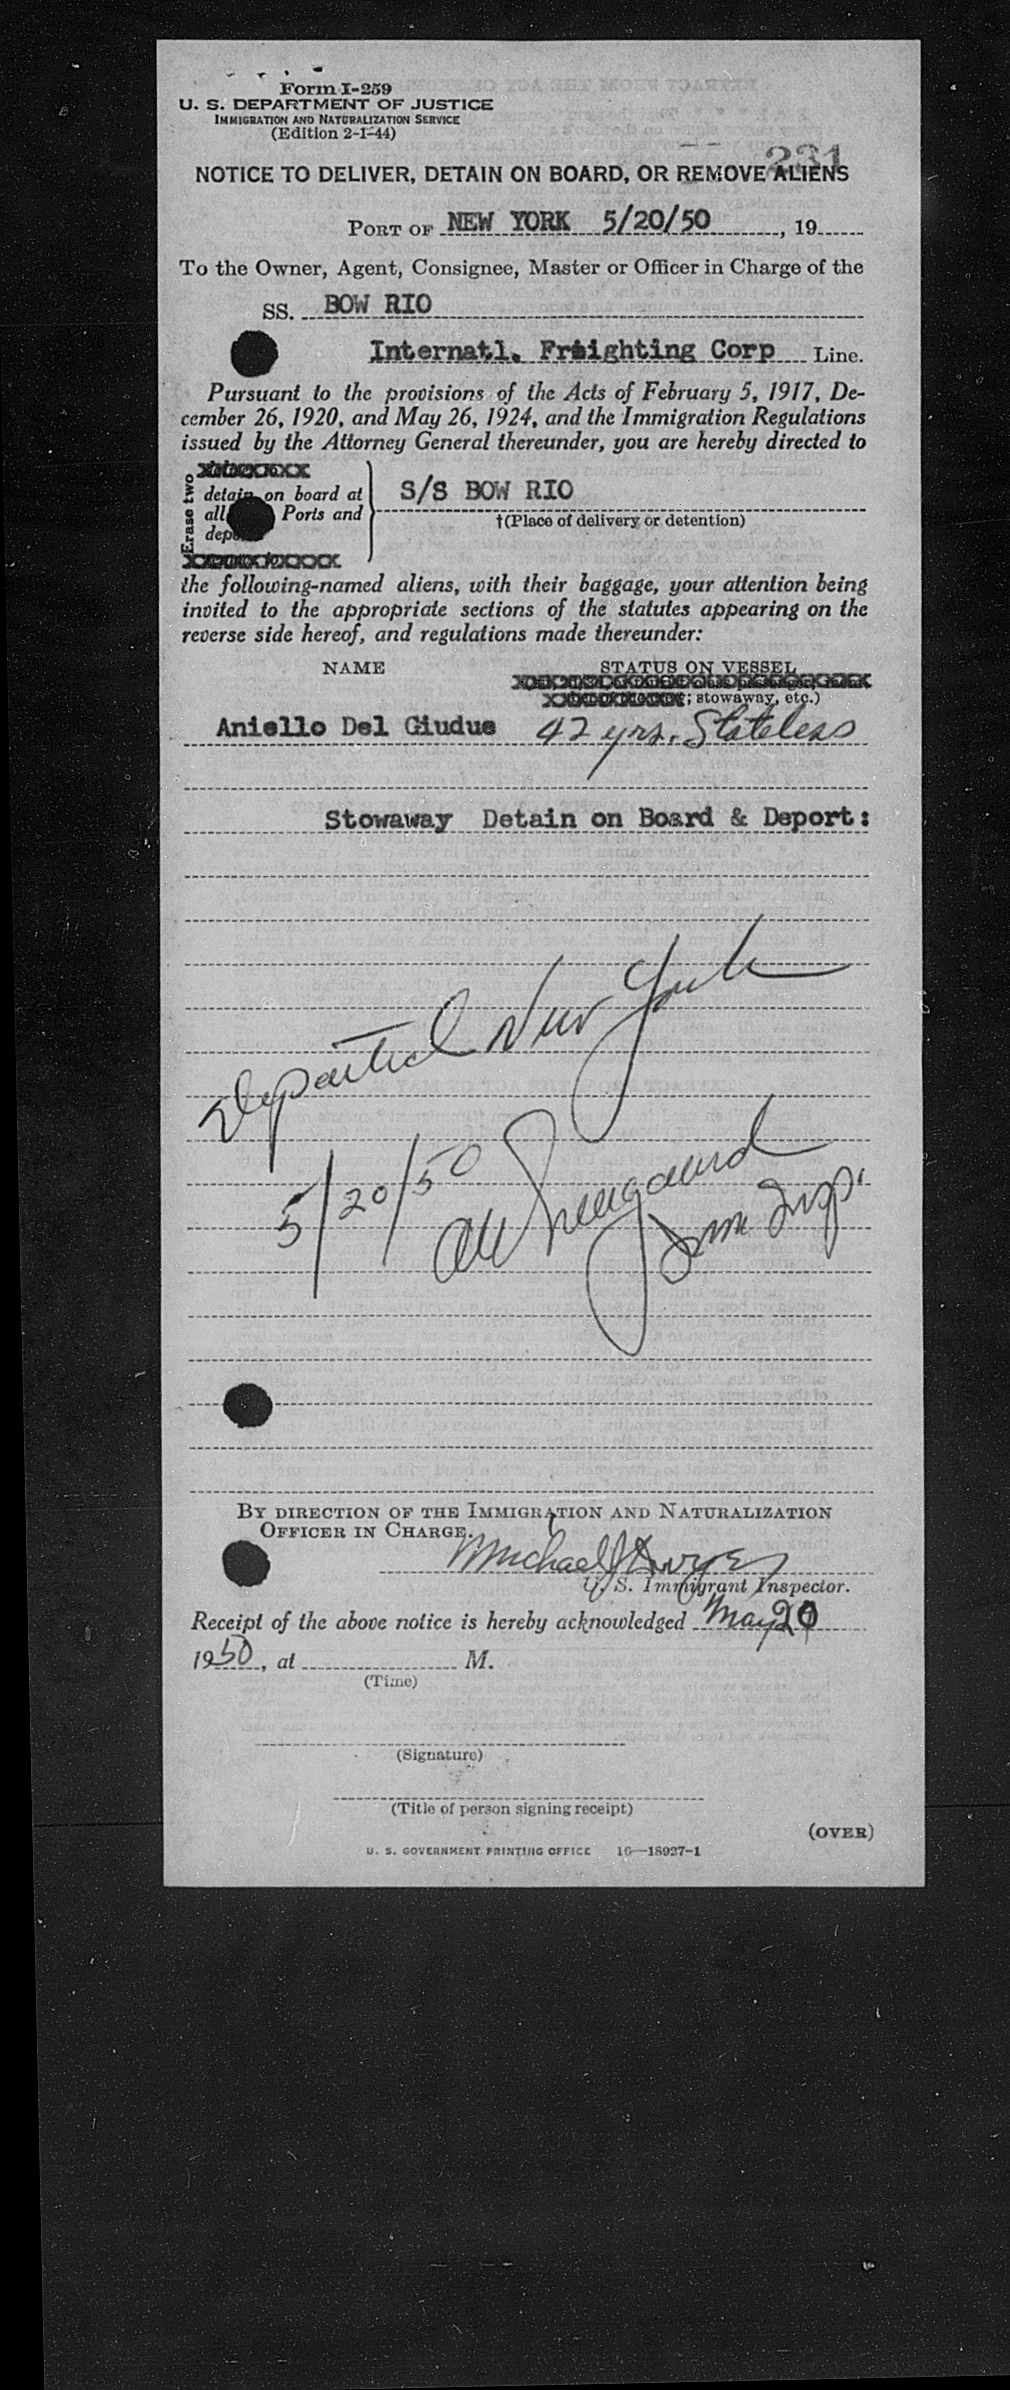 Form I-259
U. S. DEPARTMENT OF JUSTICE
IMMIGRATION AND NATURALIZATION SERVICE
(Edition 2-1-44)
231
NOTICE TO DELIVER, DETAIN ON BOARD, OR REMOVE ALIENS
PORT OF NEW YORK 5/20/50, 19
To the Owner, Agent, Consignee, Master or Officer in Charge of the
SS. BOW RIO
Internatl. Freighting Corp Line.
Pursuant to the provisions of the Acts of February 5, 1917, De-
cember 26, 1920, and May 26, 1924, and the Immigration Regulations
issued by the Attorney General thereunder, you are hereby directed to
Erase two
detain on board at
all Ports and
S/S BOW RIO
†(Place of delivery or detention)
the following-named aliens, with their baggage, your attention being
invited to the appropriate sections of the statutes appearing on the
reverse side hereof, and regulations made thereunder:
NAME STATUS ON VESSEL
; stowaway, etc.)
Aniello Del Giudue 42 yrs. Stateless
Stowaway Detain on Board & Deport:
Departed New York
5/20/50
Imm Insp.
BY DIRECTION OF THE IMMIGRATION AND NATURALIZATION
OFFICER IN CHARGE.
Michael J Dwyer
U. S. Immigrant Inspector.
Receipt of the above notice is hereby acknowledged May 20
1950, at M.
(Time)
(Signature)
(Title of person signing receipt)
(OVER)
U. S. GOVERNMENT PRINTING OFFICE 16—18927-1